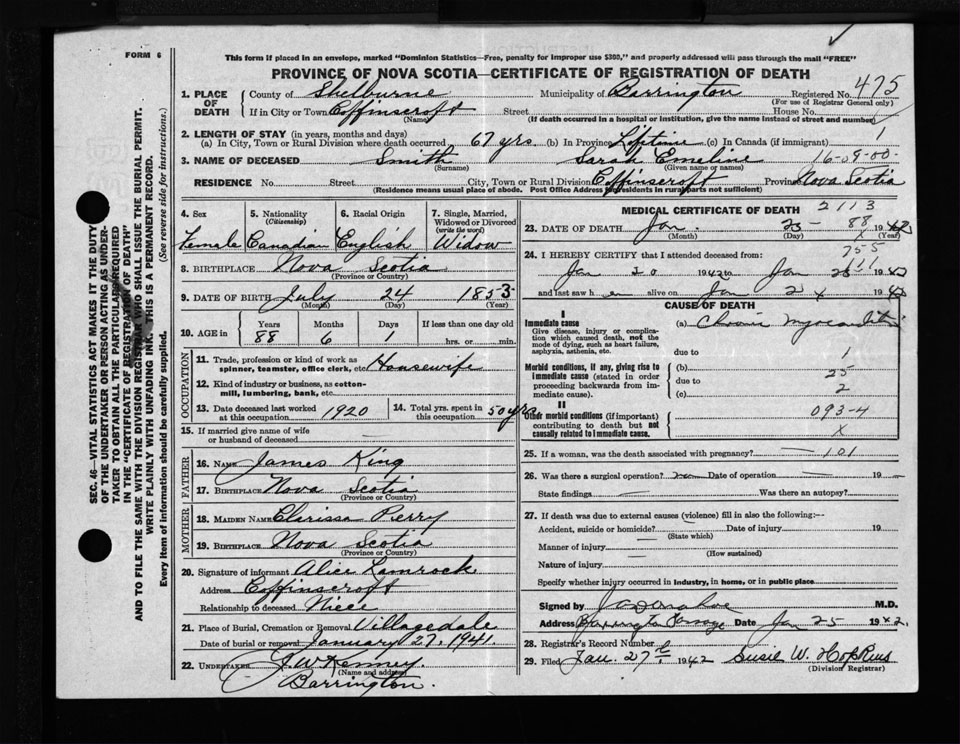 FORM 6
This form if placed in an envelope, marked "Dominion Statistics—Free, penalty for improper use $300," and properly addressed will pass through the mail "FREE"
PROVINCE OF NOVA SCOTIA—CERTIFICATE OF REGISTRATION OF DEATH
1. PLACE OF DEATH
County of Shelburne Municipality of Barrington Registered No. 475
(For use of Registrar General only)
If in City or Town Coffinscroft Street House No.
(Name) (If death occurred in a hospital or institution, give the name instead of street and number)
2. LENGTH OF STAY (in years, months and days) 1
(a) In City, Town or Rural Division where death occurred 67 yrs (b) In Province Lifetime (c) In Canada (if immigrant)
3. NAME OF DECEASED Smith Sarah Emeline 16-09-00-
(Surname) (Given name or names)
RESIDENCE No. Street City, Town or Rural Division Coffinscroft Province Nova Scotia
(Residence means usual place of abode. Post Office Address for residents in rural parts not sufficient)
4. Sex 5. Nationality (Citizenship) 6. Racial Origin 7. Single, Married, Widowed or Divorced (write the word)
Female Canadian English Widow
8. BIRTHPLACE Nova Scotia
(Province or Country)
9. DATE OF BIRTH July 24 1853
(Month) (Day) (Year)
10. AGE in Years Months Days If less than one day old
88 6 1 hrs. or min.
OCCUPATION
11. Trade, profession or kind of work as spinner, teamster, office clerk, etc. Housewife
12. Kind of industry or business, as cotton-mill, lumbering, bank, etc.
13. Date deceased last worked at this occupation 1920
14. Total yrs. spent in this occupation 50 yrs
15. If married give name of wife or husband of deceased —
FATHER
16. NAME James King
17. BIRTHPLACE Nova Scotia
(Province or Country)
MOTHER
18. MAIDEN NAME Clarissa Pierry
19. BIRTHPLACE Nova Scotia
(Province or Country)
20. Signature of informant Alice Lamrock
Address Coffinscroft
Relationship to deceased Niece
21. Place of Burial, Cremation or Removal Villagedale
Date of burial or removal January 27, 1941.
22. UNDERTAKER J W Kenney.
(Name and address)
Barrington.
MEDICAL CERTIFICATE OF DEATH 2113
23. DATE OF DEATH Jan. 25 88 1942
(Month) (Day) (Year)
24. I HEREBY CERTIFY that I attended deceased from: 755
Jan 20 1942 to Jan 1942
and last saw h er alive on Jan 24 1942
CAUSE OF DEATH
I
Immediate cause
Give disease, injury or complication which caused death, not the mode of dying, such as heart failure, asphyxia, asthenia, etc.
(a) Chronic myocarditis
due to 1
Morbid conditions, if any, giving rise to immediate cause (stated in order proceeding backwards from immediate cause).
(b) 25
due to 2
(c)
II
Other morbid conditions (if important) contributing to death but not causally related to immediate cause.
093-4
X
25. If a woman, was the death associated with pregnancy? — 101
26. Was there a surgical operation? Date of operation — 19 —
State findings — Was there an autopsy?
27. If death was due to external causes (violence) fill in also the following:—
Accident, suicide or homicide? — Date of injury 19
(State which)
Manner of injury
(How sustained)
Nature of injury
Specify whether injury occurred in industry, in home, or in public place
Signed by M.D.
Address Barrington Passage Date Jan 25 1942.
28. Registrar's Record Number
29. Filed Jan. 27th, 1942 Susie W. Hopkins
(Division Registrar)
SEC. 46—VITAL STATISTICS ACT MAKES IT THE DUTY
OF THE UNDERTAKER OR PERSON ACTING AS UNDER-
TAKER TO OBTAIN ALL THE PARTICULARS REQUIRED
IN THE "CERTIFICATE OF REGISTRATION OF DEATH"
AND TO FILE THE SAME WITH THE DIVISION REGISTRAR WHO SHALL ISSUE THE BURIAL PERMIT.
WRITE PLAINLY WITH UNFADING INK. THIS IS A PERMANENT RECORD.
Every item of information should be carefully supplied. (See reverse side for instructions.)